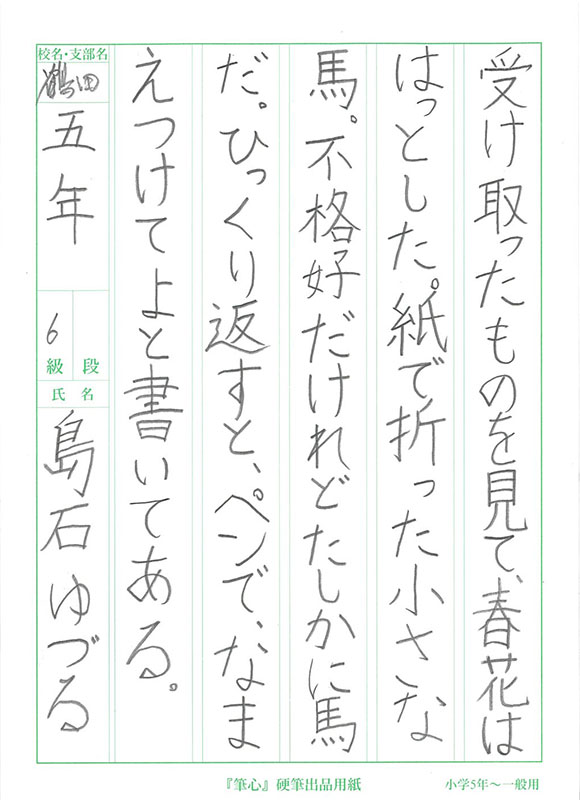 受け取ったものを見て、春花は
はっとした。紙で折った小さな
馬。不格好だけれどたしかに馬
だ。ひっくり返すと、ペンで、なま
えつけてよと書いてある。
校名・支部名
鶴田
五年
6
級 段
氏名
島石ゆづる
『筆心』硬筆出品用紙
小学5年〜一般用